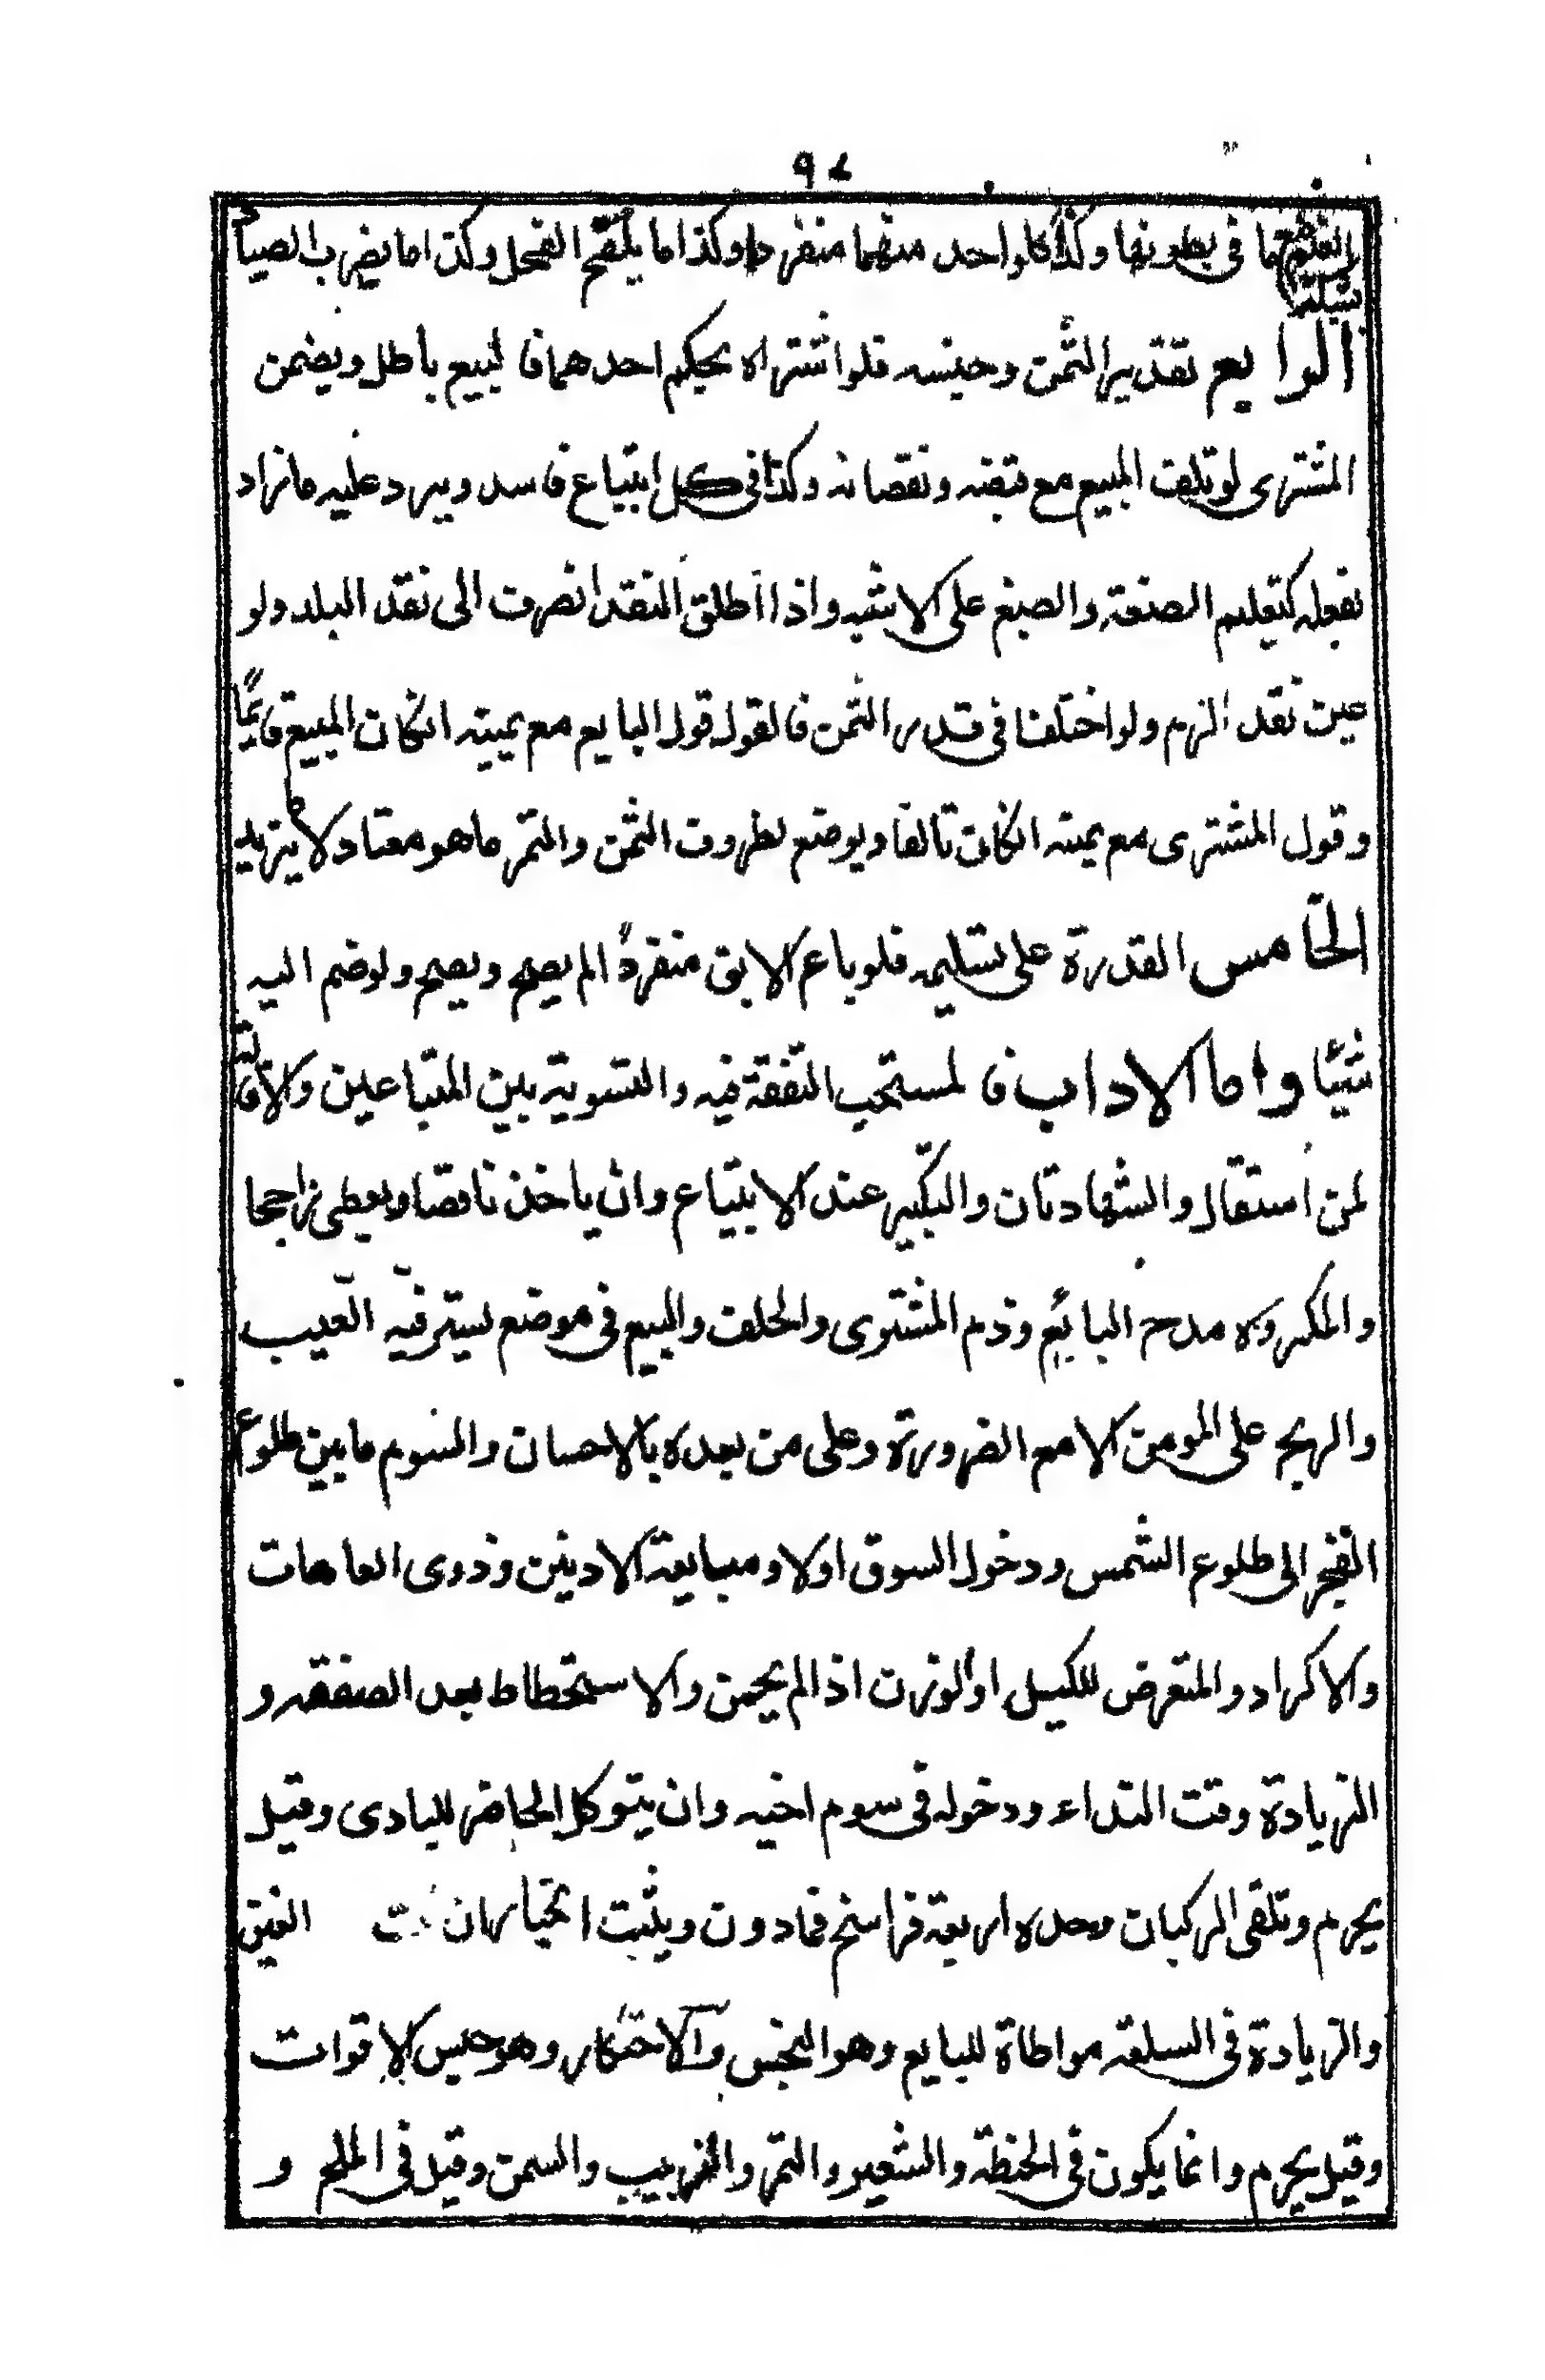 ٩٤
ما فى بطونها وكذا كلواحد منهما منفردا وكذا ما يلقح الفحل وكذا ما يضرب الصياد
الرابع تقدير الثمن وجنسه فلو اشتراه بحكم احدهما فالبيع باطل ويضمن
المشترى لو تلف المبيع مع قبضه ونقصانه وكذا فى كل ابتياع فاسد ويرد عليه ما زاد
بفعله كتعليم الصنعة والصبغ على الاشبه واذا اطلق النقد انصرف الى نقد البلد ولو
عين نقدا لزم ولو اختلفا فى قدر الثمن فالقول قول البايع مع يمينه انكان المبيع قايمًا
وقول المشترى مع يمينه انكان تالفا ويوضع لظروف الثمن والتمر ما هو معتاد لا يزيد
الخامس القدرة على تسليمه فلو باع الابق منفردًا لم يصح ويصح ولو ضم اليه
شيئًا واما الاداب فالمستحب التفقة فيه والتسوية بين المتباعين والاقالة
لمن استقال والشهادتان والتكبير عند الابتياع وان ياخذ ناقصا ويعطى راجحا
والمكروه مدح البائع وذم المشترى والحلف والبيع فى موضع يستر فيه العيب
والربح على المومن الا مع الضرورة وعلى من يعده بالاحسان والسوم ما بين طلوع
الفجر الى طلوع الشمس ودخول السوق اولا ومبايعة الادينن وذوى العاهات
والاكراد والتعرض للكيل او الوزن اذا لم يحسن والاستحطاط بعد الصفقه و
الزيادة وقت النداء ودخوله فى سوم اخيه وان يتوكل الحاضر للبادى وقيل
يحرم وتلقى الركبان وحده اربعة فراسخ فمادون ويثبت الخيار ان الغبن
والزيادة فى السلعة مواطاة للبايع وهو النجش والاحتكار وهو حبس الاقوات
وقيل يحرم وانما يكون فى الحنطة والشعير والتمر والزبيب والسمن وقيل فى الملح و